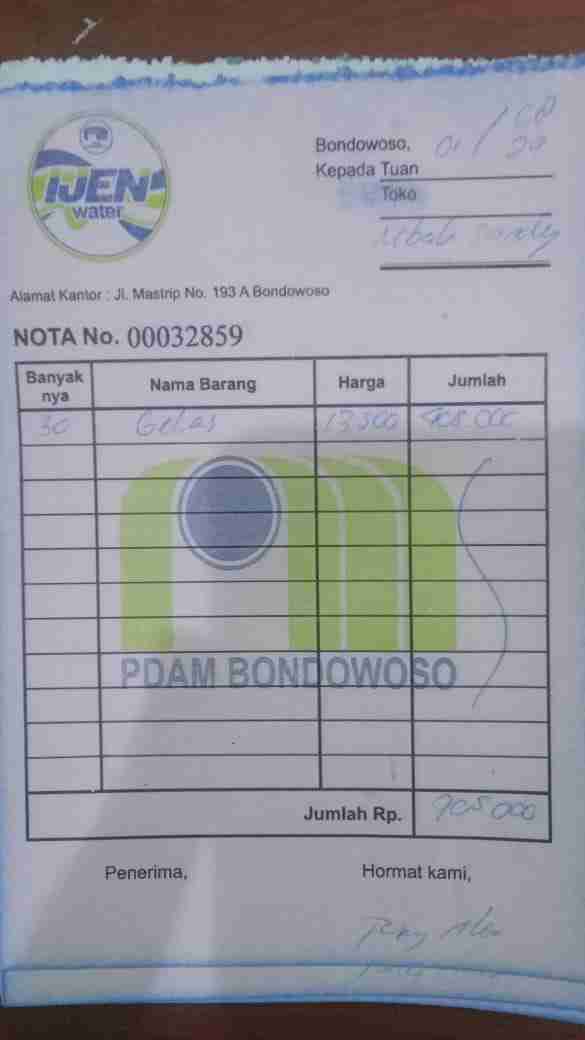 IJEN
water
Bondowoso, 01 / 08 20
Kepada Tuan
Toko
Mbak
Alamat Kantor : Jl. Mastrip No. 193 A Bondowoso
NOTA No. 00032859
Banyak nya Nama Barang Harga Jumlah
30 Gelas 13.500 405.000
PDAM BONDOWOSO
Jumlah Rp. 405.000
Penerima, Hormat kami,